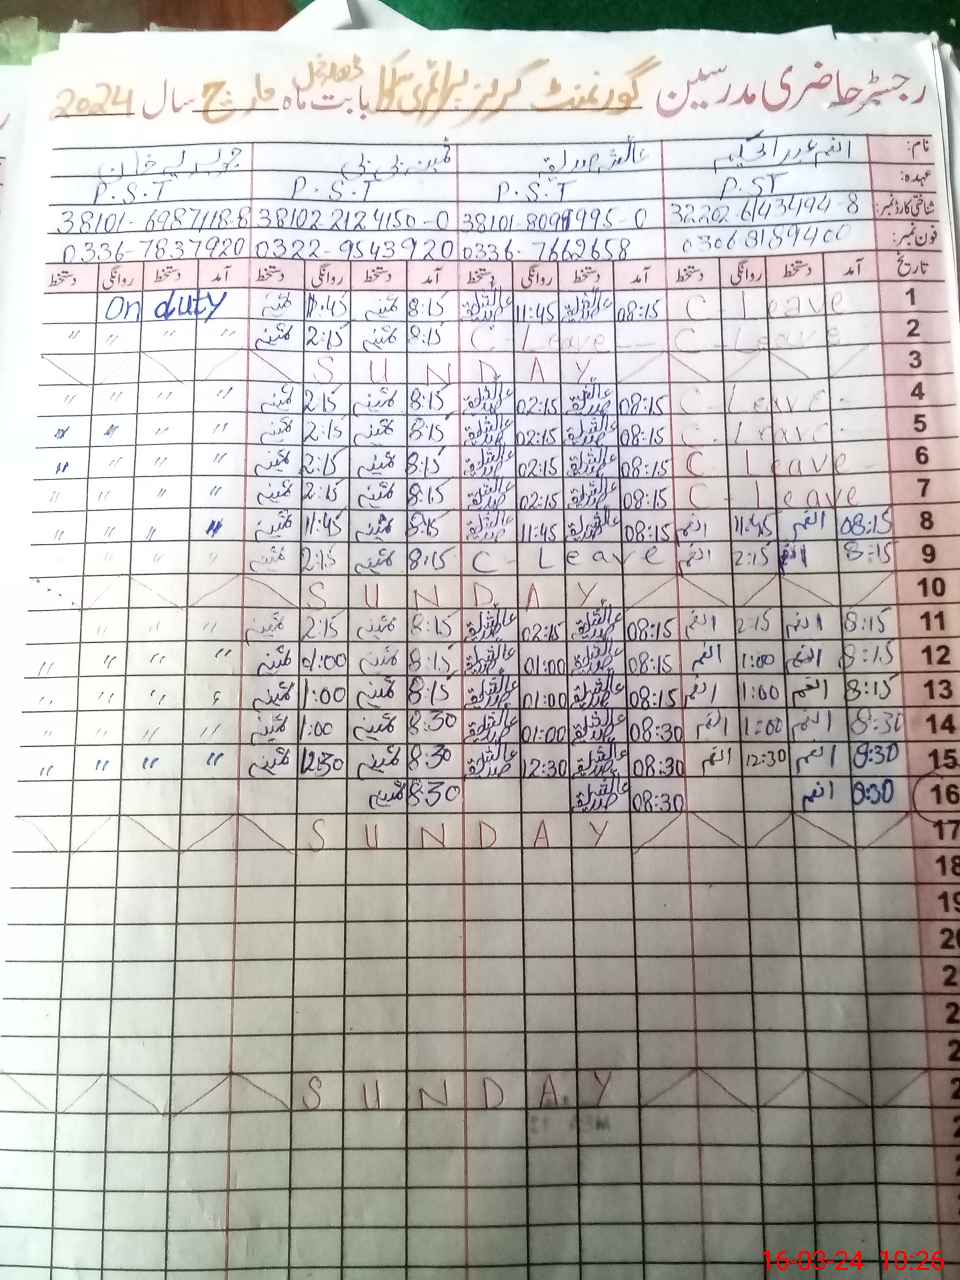 رجسٹر حاضری مدرسین گورنمنٹ گرلز پرائمری سکول بابت ماہ مارچ سال 2024
نام: انعم عبدالحکیم عائشہ صدیقہ ثمینہ بی بی جویریہ خان
عہدہ: P.ST P.S.T P.S.T P.S.T
شناختی کارڈ نمبر: 32202-6143494-8 38102-2124150-0
فون نمبر: 03068159400 0336-7662658 0322-9543920 0336-7837920
تاریخ آمد دستخط روانگی دستخط آمد دستخط روانگی دستخط آمد دستخط روانگی دستخط آمد دستخط روانگی دستخط
1 C-Leave 08:15 عائشہ صدیقہ 11:45 عائشہ صدیقہ 8:15 ثمینہ 11:45 ثمینہ On duty
2 C-Leave C-Leave 8:15 ثمینہ 2:15 ثمینہ " " " "
3 SUNDAY
4 C-Leave 08:15 عائشہ صدیقہ 02:15 عائشہ صدیقہ 8:15 ثمینہ 2:15 ثمینہ " " " "
5 C-Leave 08:15 عائشہ صدیقہ 02:15 عائشہ صدیقہ 8:15 ثمینہ 2:15 ثمینہ " " " "
6 C-Leave 08:15 عائشہ صدیقہ 02:15 عائشہ صدیقہ 8:15 ثمینہ 2:15 ثمینہ " " " "
7 C-Leave 08:15 عائشہ صدیقہ 02:15 عائشہ صدیقہ 8:15 ثمینہ 2:15 ثمینہ " " " "
8 08:15 انعم 11:45 انعم 08:15 عائشہ صدیقہ 11:45 عائشہ صدیقہ 8:15 ثمینہ 11:45 ثمینہ " " " "
9 8:15 انعم 2:15 انعم C-Leave 8:15 ثمینہ 2:15 ثمینہ " " " "
10 SUNDAY
11 8:15 انعم 2:15 انعم 08:15 عائشہ صدیقہ 02:15 عائشہ صدیقہ 8:15 ثمینہ 2:15 ثمینہ " " "
12 8:15 انعم 1:00 انعم 08:15 عائشہ صدیقہ 01:00 عائشہ صدیقہ 8:15 ثمینہ 01:00 ثمینہ " " " "
13 8:15 انعم 1:00 انعم 08:15 عائشہ صدیقہ 01:00 عائشہ صدیقہ 8:15 ثمینہ 1:00 ثمینہ " " " "
14 8:30 انعم 1:00 انعم 08:30 عائشہ صدیقہ 01:00 عائشہ صدیقہ 8:30 ثمینہ 1:00 ثمینہ " " " "
15 8:30 انعم 12:30 انعم 08:30 عائشہ صدیقہ 12:30 عائشہ صدیقہ 8:30 ثمینہ 12:30 ثمینہ " " " "
16 8:30 انعم 08:30 عائشہ صدیقہ 8:30 ثمینہ
17 SUNDAY
18
19
20
2
2
2
2 SUNDAY
16-03-24 10:26